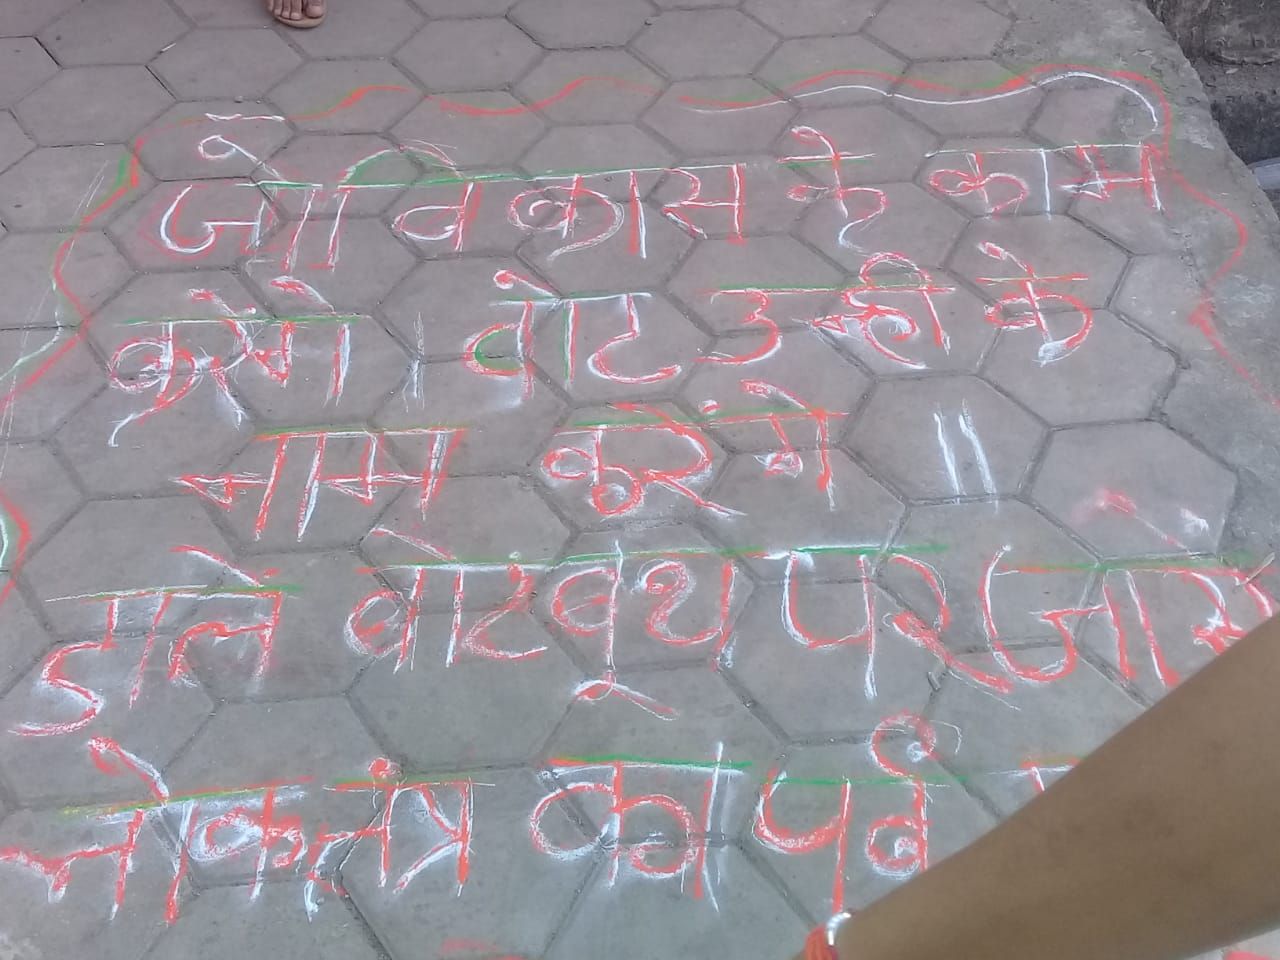 जो विकास के काम
करेंगे । वोट उन्ही के
नाम करंगे ॥
डाले वोट बूथ पर
लोकतंत्र का पर्व